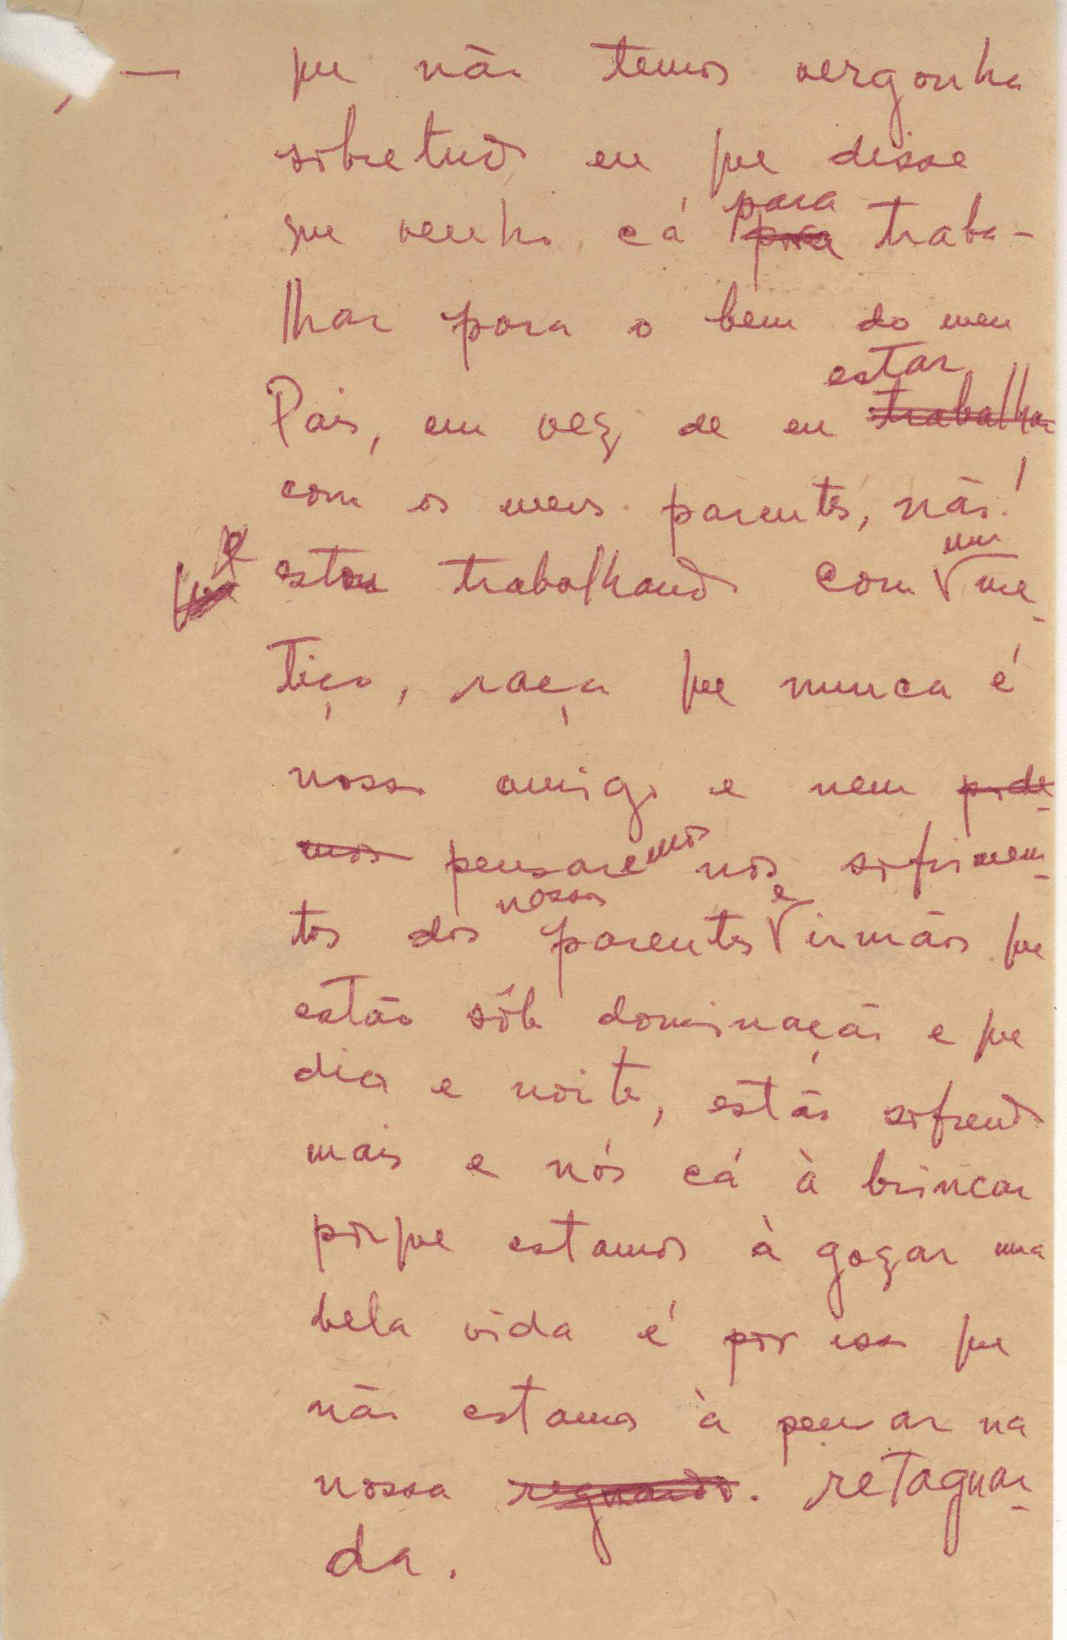 — que não temos vergonha
sobretudo eu que disse
que venho cá para para traba-
lhar para o bem do meu
País, em vez de eu trabalhar estar
com os meus parentes, não!
e estou trabalhando com um me-
tiço, raça que nunca é
nosso amigo e nem pode-
mos pensaremos nos sofrimen-
tos dos nossos parentes e irmãos que
estão sôb dominação e que
dia e noite, estão sofrendo
mais e nós cá à brincar
porque estamos à gozar uma
bela vida é por isso que
não estamos à pensar na
nossa reguardo. retaguar-
da.